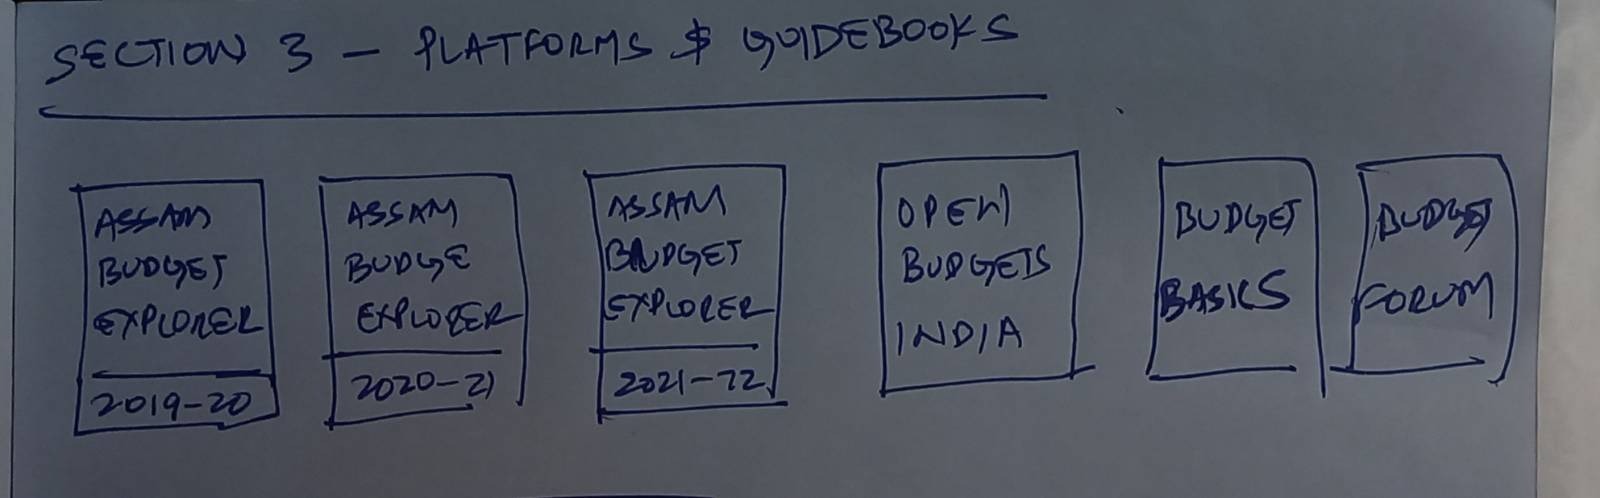 SECTION 3 - PLATFORMS & GUIDEBOOKS
ASSAM
BUDGET
EXPLORER
2019-20
ASSAM
BUDGE
EXPLORER
2020-21
ASSAM
BUDGET
EXPLORER
2021-22
OPEN
BUDGETS
INDIA
BUDGET
BASICS
BUDGET
FORUM